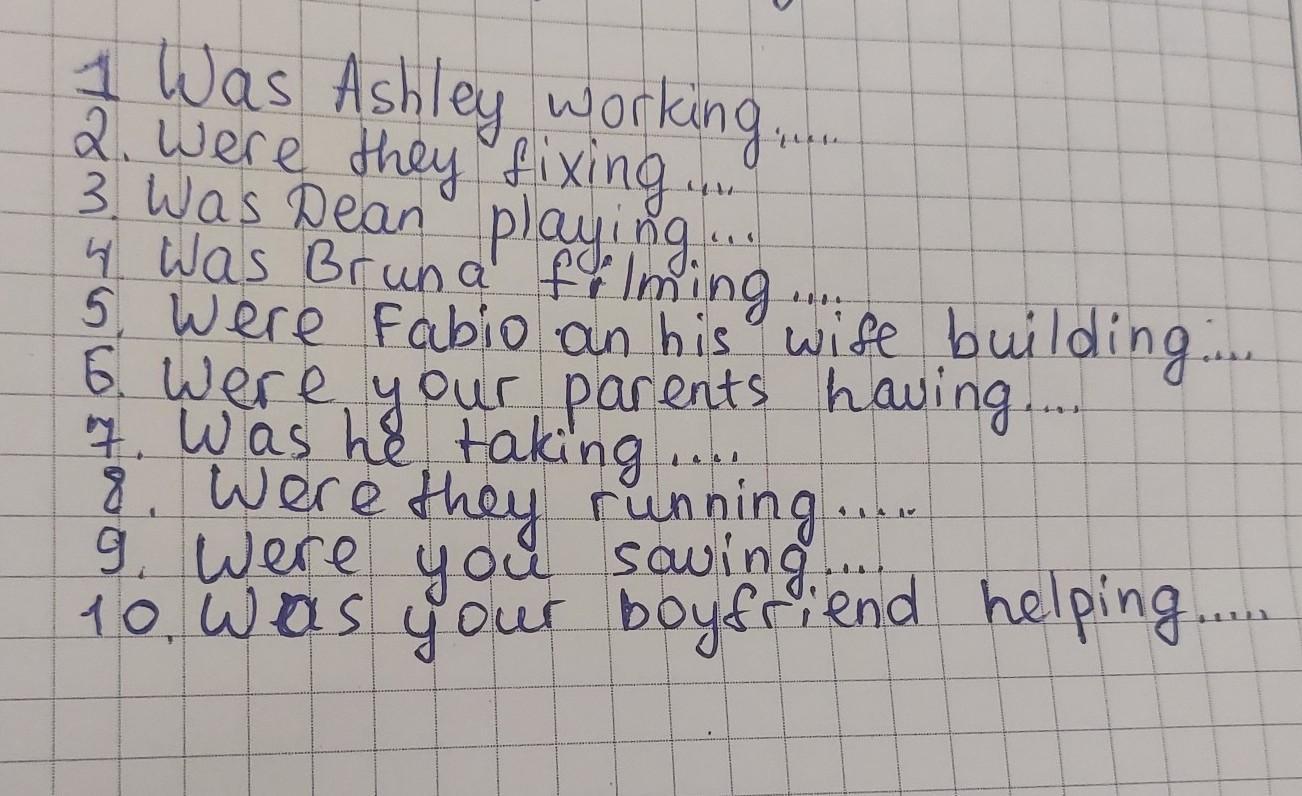 1 Was Ashley working.....
2. Were they fixing....
3. Was Dean playing...
4 Was Bruna filming....
5. Were Fabio an his wife building....
6. Were your parents having....
7. Was he taking....
8. Were they running.....
9. Were you sawing....
10. Was your boyfriend helping.....